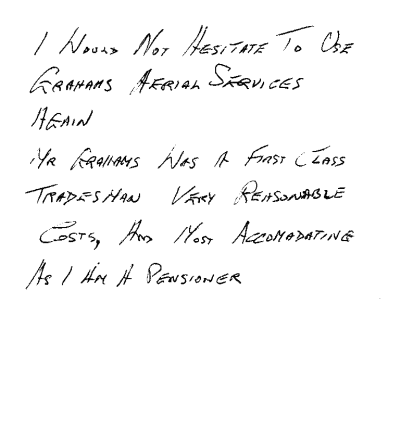 I Would Not Hesitate To Use
Grahams Aerial Services
Again
Mr Grahams Was A First Class
Tradesman Very Reasonable
Costs, And Most Accomadating
As I Am A Pensioner